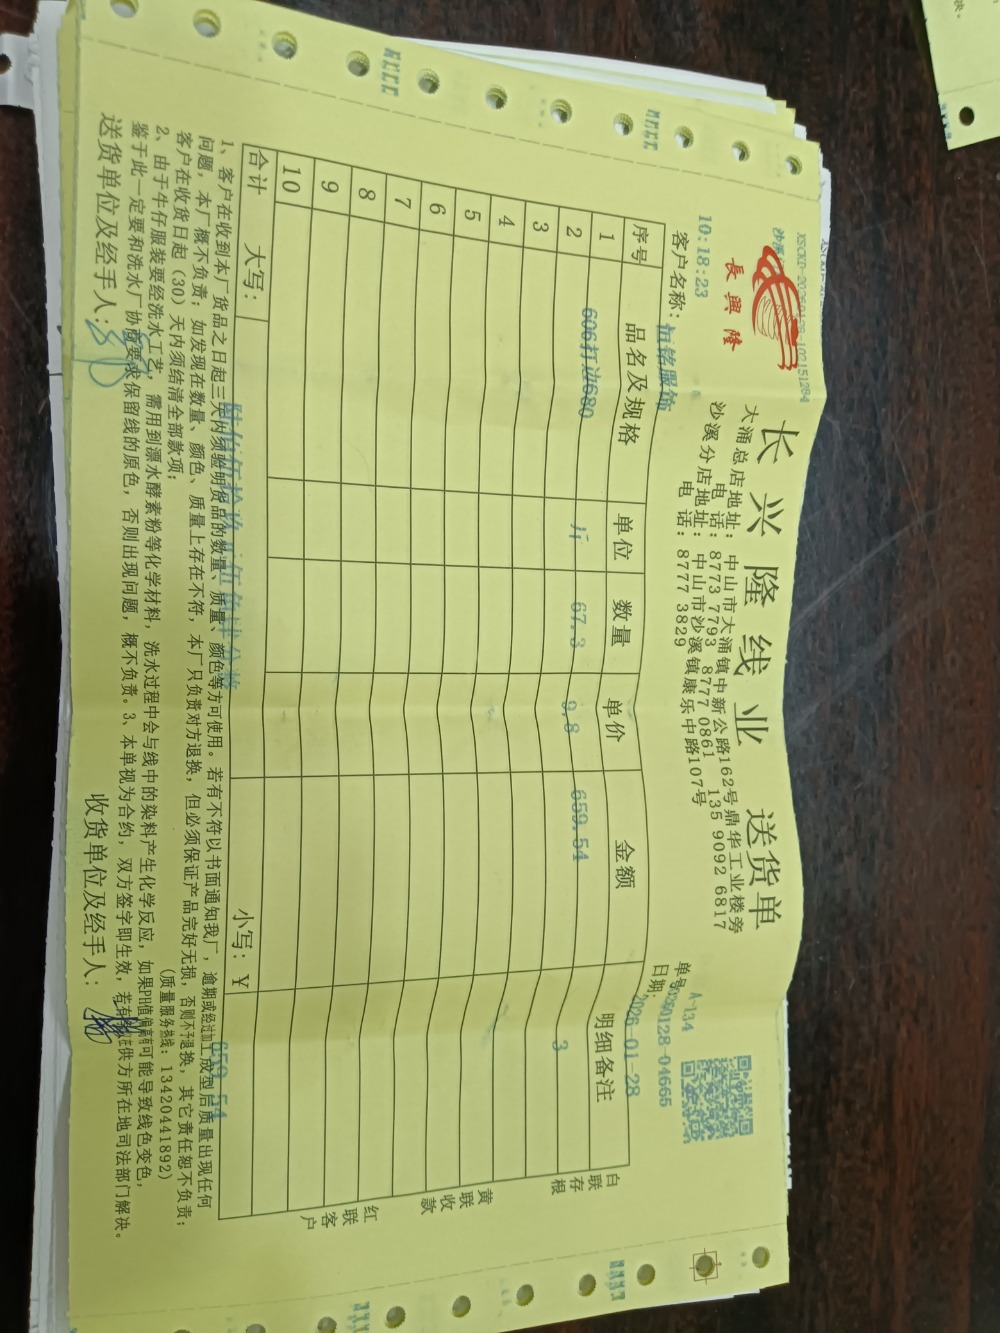 长兴隆线业 送货单
長興隆
大涌总店地址：中山市大涌镇中新公路162号鼎华工业楼旁
电话：8773 7793 8777 0861 135 9092 6817
沙溪分店地址：中山市沙溪镇康乐中路107号
电话：8777 3829
10:18:23
A-134
单号：20260128-04665
日期：2026-01-28
客户名称：恒铭服饰
序号 品名及规格 单位 数量 单价 金额 明细备注
1 606打边680 斤 67.3 9.8 659.54 3
2
3
4
5
6
7
8
9
10
合计 大写： 小写：￥ 659.54
白联存根
黄联收款
红联客户
1、客户在收到本厂货品之日起三天内须验明货品的数量、质量、颜色等方可使用。若有不符以书面通知我厂，逾期或经过加工成型后质量出现任何
问题，本厂概不负责；如发现在数量、颜色、质量上存在不符，本厂只负责对方退换，但必须保证产品完好无损，否则不予退换，其它责任恕不负责；
客户在收货日起（30）天内须结清全部款项；
（质量服务热线：13420441892）
2、由于牛仔服装要经洗水工艺，需用到漂水酵素粉等化学材料，洗水过程中会与线中的染料产生化学反应，如果PH值偏高有可能导致线色变色，
鉴于此一定要和洗水厂协商要求保留线的原色，否则出现问题，概不负责。3、本单视为合约，双方签字即生效，若有争议在供方所在地司法部门解决。
送货单位及经手人：
收货单位及经手人：